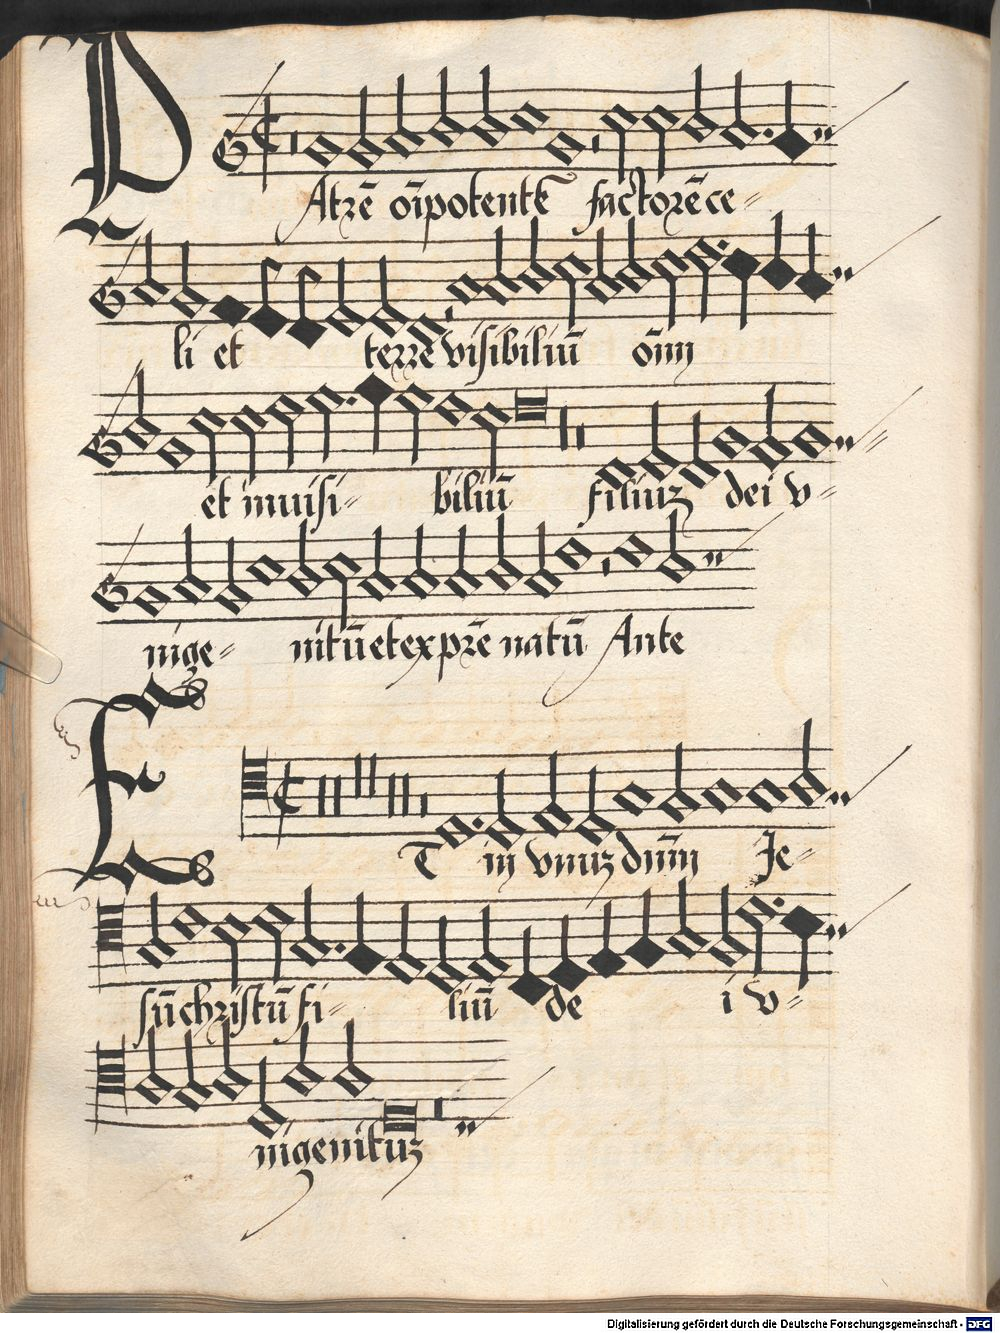 PAtrē oīpotentē factorē ce=
li et terre visibiliū oīm
et inuisi= biliū filiuz dei v=
nige= nitū et ex prē natū Ante
ET in vnuz dnm Je=
sū christū fi= liū de i v=
nigenituz
Digitalisierung gefördert durch die Deutsche Forschungsgemeinschaft - DFG